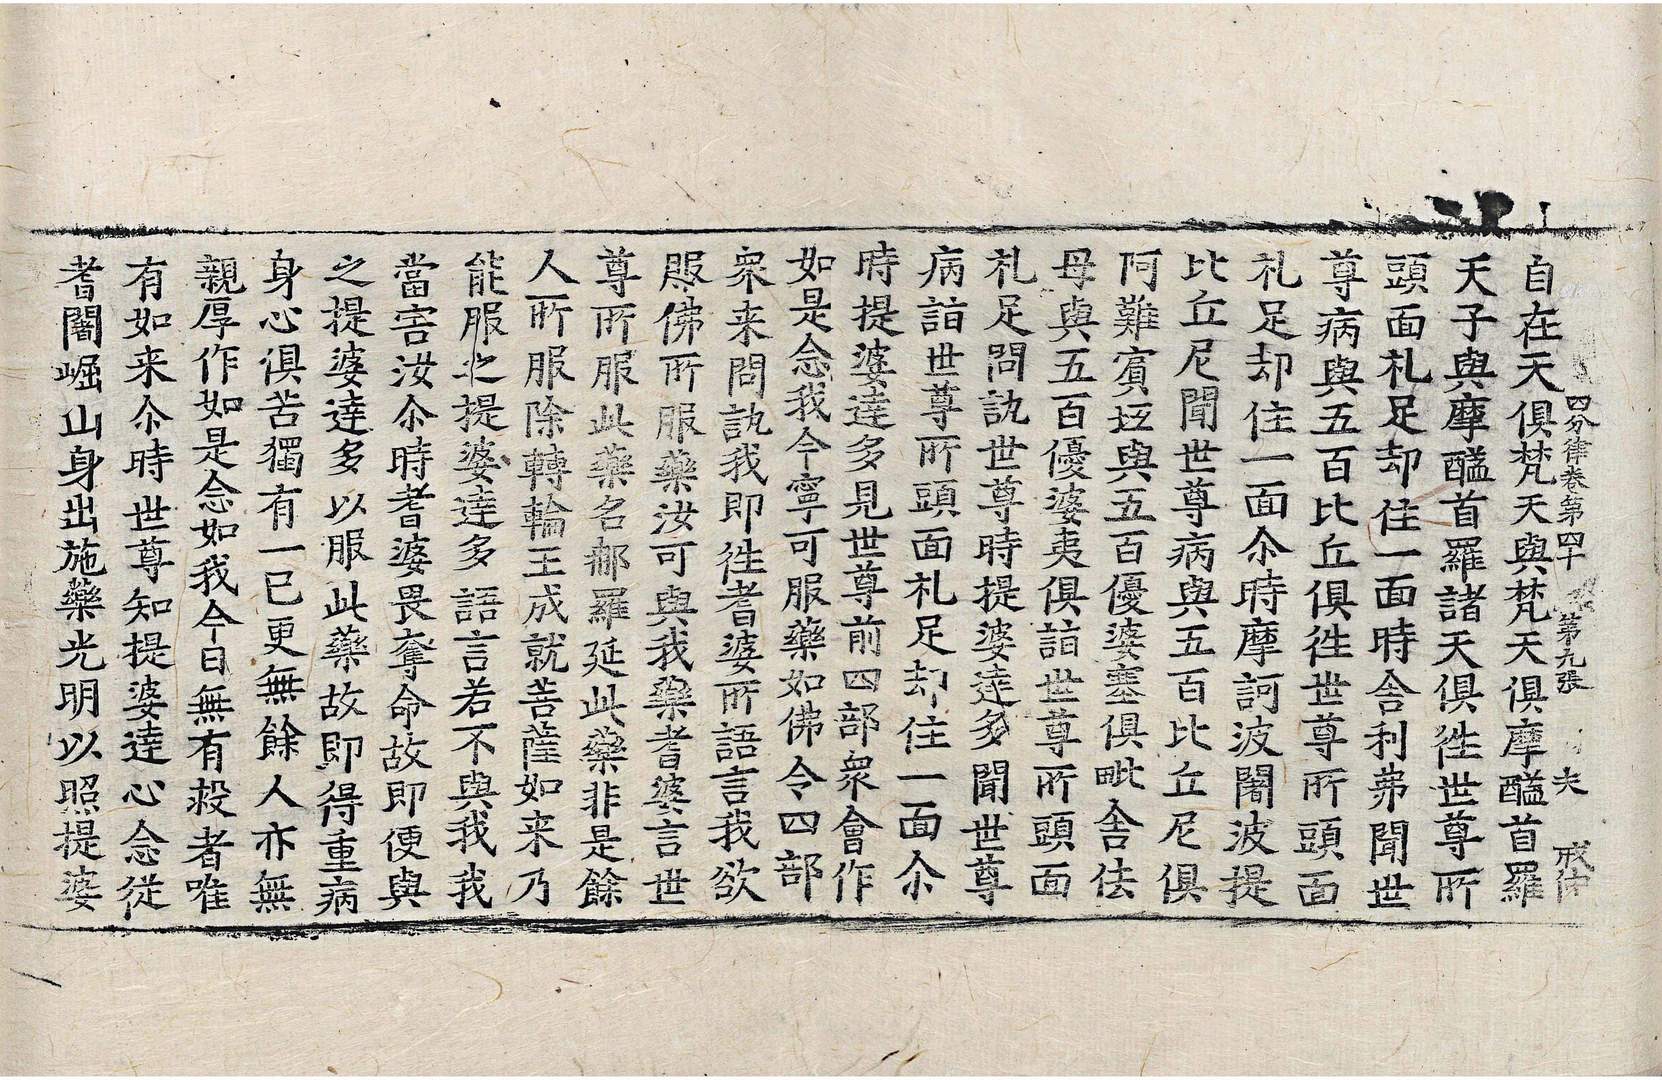 四分律卷第四十 第九張 夫 戒休
自在天俱梵天與梵天俱摩醯首羅
天子與摩醯首羅諸天俱徃世尊所
頭面礼足却住一面時舍利弗聞世
尊病與五百比丘俱徃世尊所頭面
礼足却住一面尒時摩訶波闍波提
比丘尼聞世尊病與五百比丘尼俱
阿難賓坻與五百優婆塞俱毗舍佉
母與五百優婆夷俱詣世尊所頭面
礼足問訊世尊時提婆達多聞世尊
病詣世尊所頭面礼足却住一面尒
時提婆達多見世尊前四部衆會作
如是念我今寧可服藥如佛令四部
衆来問訊我即徃耆婆所語言我欲
服佛所服藥汝可與我藥耆婆言世
尊所服此藥名郍羅延此藥非是餘
人所服除轉輪王成就菩薩如来乃
能服之提婆達多語言若不與我我
當害汝尒時耆婆畏奪命故即便與
之提婆達多以服此藥故即得重病
身心俱苦獨有一已更無餘人亦無
親厚作如是念如我今日無有救者唯
有如来尒時世尊知提婆達心念従
耆闍崛山身出施藥光明以照提婆